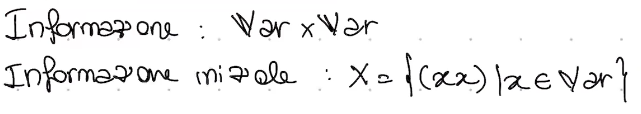 Informazione : Var x Var
Informazione iniziale : X = {(xx) | x ∈ Var}